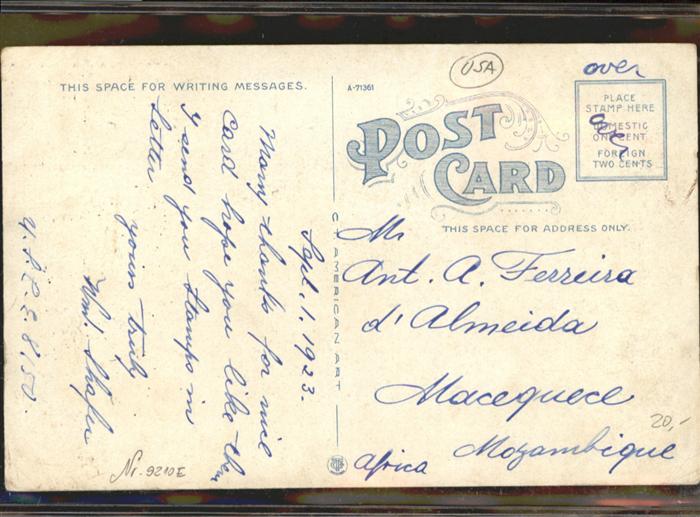 USA
over
THIS SPACE FOR WRITING MESSAGES.
A-71361
POST
CARD
PLACE
STAMP HERE
DOMESTIC
ONE CENT
FOREIGN
TWO CENTS
THIS SPACE FOR ADDRESS ONLY.
C. T. AMERICAN ART
Sept. 1. 1923.
Many thanks for nice
Card hope you like them
I send you Stamps in
Letter
yours truly
Wm. Shafer
Mr
Ant. A. Ferreira
d'Almeida
Macequece
Mozambique
Africa
20,-
Nr. 9210E